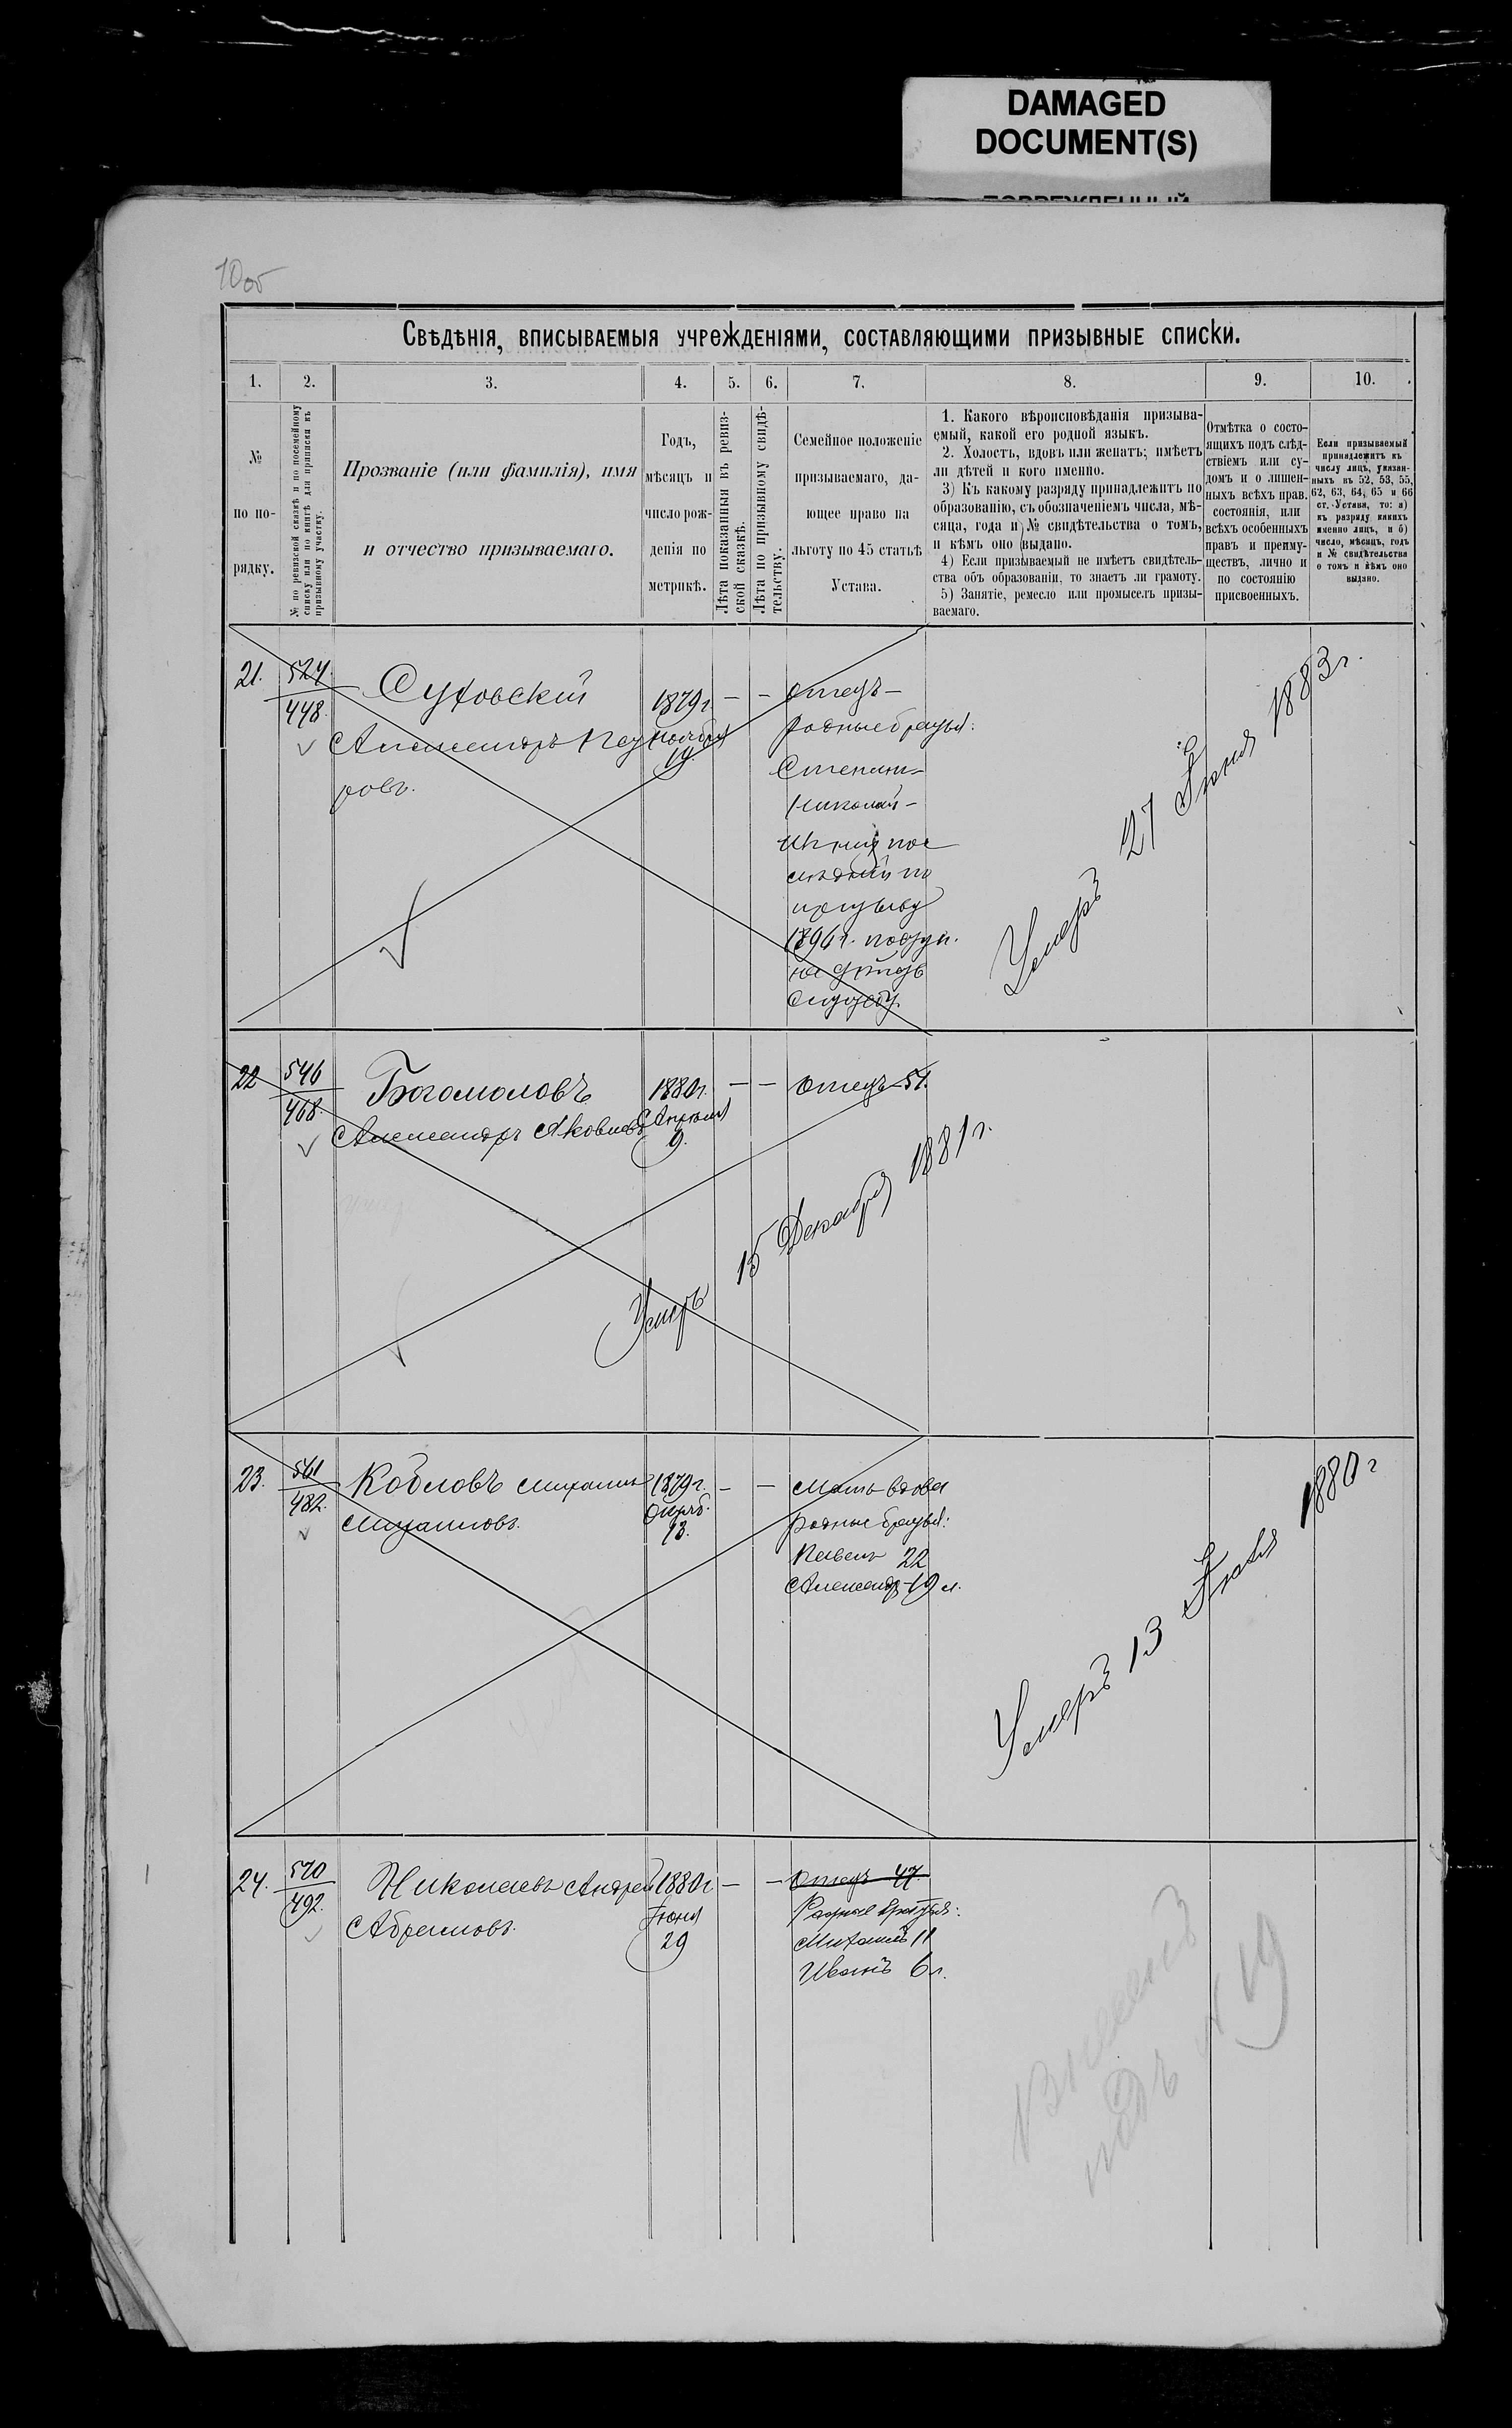 DAMAGED
DOCUMENT(S)
ПОВРЕЖДЕННЫЙ
10об
Свѣдѣнія, вписываемыя учрежденіями, составляющими призывные списки.
1. 2. 3. 4. 5. 6. 7. 8. 9. 10.
№
по по-
рядку.
№ по ревизской сказкѣ и по посемейному
списку или по книгѣ для приписки къ
призывному участку.
Прозваніе (или фамилія), имя
и отчество призываемаго.
Годъ,
мѣсяцъ и
число рож-
денія по
метрикѣ.
Лѣта показанныя въ ревиз-
ской сказкѣ.
Лѣта по призывному свидѣ-
тельству.
Семейное положеніе
призываемаго, да-
ющее право на
льготу по 45 статьѣ
Устава.
1. Какого вѣроисповѣданія призыва-
емый, какой его родной языкъ.
2. Холостъ, вдовъ или женатъ; имѣетъ
ли дѣтей и кого именно.
3) Къ какому разряду принадлежитъ по
образованію, съ обозначеніемъ числа, мѣ-
сяца, года и № свидѣтельства о томъ,
и кѣмъ оно выдано.
4) Если призываемый не имѣетъ свидѣтель-
ства объ образованіи, то знаетъ ли грамоту.
5) Занятіе, ремесло или промыселъ призы-
ваемаго.
Отмѣтка о состо-
ящихъ подъ слѣд-
ствіемъ или су-
домъ и о лишен-
ныхъ всѣхъ прав.
состоянія, или
всѣхъ особенныхъ
правъ и преиму-
ществъ, лично и
по состоянію
присвоенныхъ.
Если призываемый
принадлежитъ къ
числу лицъ, указан-
ныхъ въ 52, 53, 55,
62, 63, 64, 65 и 66
ст. Устава, то: а)
къ разряду какихъ
именно лицъ, и б)
число, мѣсяцъ, годъ
и № свидѣтельства
о томъ и кѣмъ оно
выдано.
21. 524. Суховскій 1879г. — — отецъ —
448. Александръ
ноября
родные братья:
ровъ.
Степанъ —
Николай —
изъ нихъ пос
лѣдній по
призыву
1896г. поступ.
на дѣйств
службу.
Умеръ 27 Іюня 1883г.
22 546 Богомоловъ 1880г. — — отецъ 51.
468. Александръ Яковлевъ Апрѣля
9.
Умеръ 15 Декабря 1881г.
23. 561 Козловъ Михаилъ 1879г. — — Мать вдова
482. Михаиловъ. Октяб. родные братья:
13.
Павелъ 22
Александр 19 л.
Умеръ 13 Іюля 1880г
24. 570 Николаевъ Андрей 1880г — — Отецъ 47.
492. Абрамовъ. Іюня Родные братья:
29 Михаилъ 11
Иванъ 6л.
Внесенъ
подъ №19